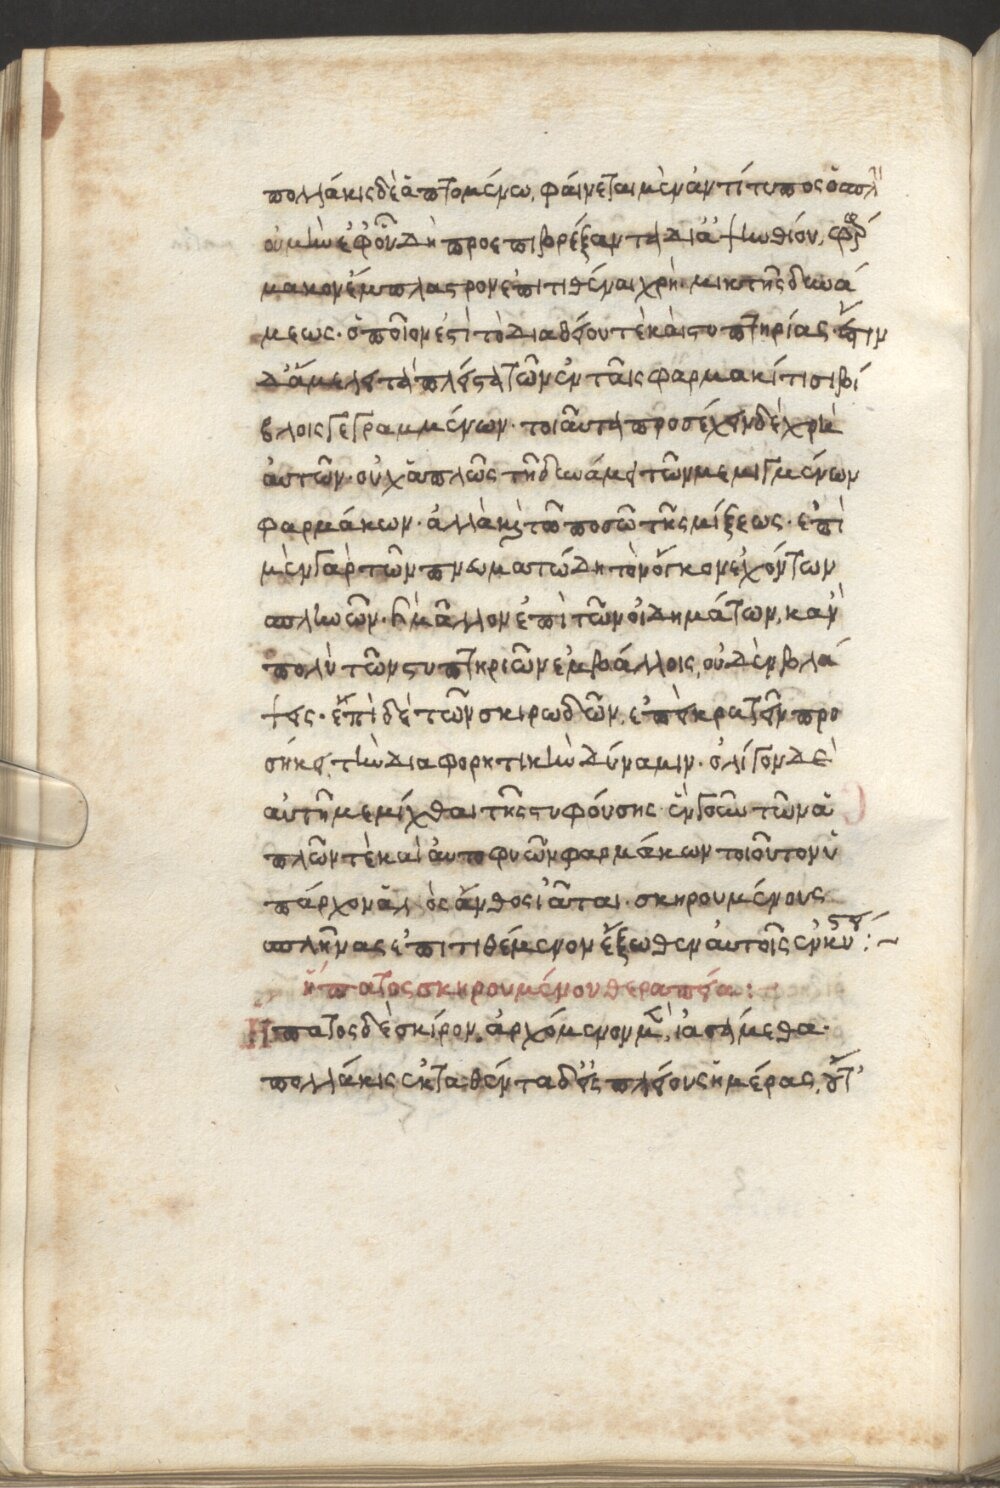 πολλάκις δὲ ἁπτομένω, φαίνεται μὲν ἀντίτυπος ὁ σπλὴ
οὐ μὴν ἐφ' ὃν δὴ προεπιβρέξαντα διὰ ἀψινθίου, φάρ
μακον ἔμπλαστρον ἐπιτιθέναι χρὴ μικτῆς δυνά
μεως· ὁποῖον ἐστὶ τὸ διὰ θείου τὲ καὶ στυπτηρίας· ἔστιν
δ' ἀμέλει τὰ πλεῖστα τῶν ἐν ταῖς φαρμακίτισι βί
βλοις γεγραμμένων· τοιαῦτα προσέχειν δὲ χρὴ
αὐτῶν· οὐχ ἁπλῶς τῆ δυνάμει τῶν μεμιγμένων
φαρμάκων· ἀλλὰ καὶ τῶ ποσῶ τῆς μίξεως· ἐπὶ
μὲν γὰρ τῶν πνευματώδη τὸν ὄγκον ἐχόντων
σπληνῶν· ἢ μᾶλλον ἐπὶ τῶν οἰδημάτων, κἂν
πολὺ τῶν στυπτηριῶν ἐμβάλλοις, οὐδὲν βλά
ψεις· ἐπὶ δὲ τῶν σκιρωδῶν, ἐπικρατεῖν προ
σήκει, τὴν διαφορητικὴν δύναμιν· ὀλίγον δὲ
αὐτῆ μεμίχθαι τῆς στυφούσης· ἐν γοῦν τῶν ἁ
πλῶν τὲ καὶ αὐτοφυῶν φαρμάκων τοιοῦτον ὑ
πάρχον ἁλὸς ἄνθος ἰᾶται· σκηρουμένους
σπλῆνας ἐπιτιθέμενον ἔξωθεν αὐτοῖς
ἥπατος σκηρουμένου θεραπεία:
Ἥπατος δὲ σκίρον, ἀρχόμενον μὲν, ἰασάμεθα·
πολλάκις ἐκταθέντα δ' εἰς πλείους ἡμέρας,